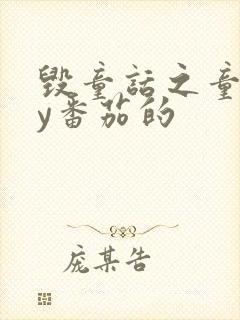 毁童话之童
y番茄的
庞某告